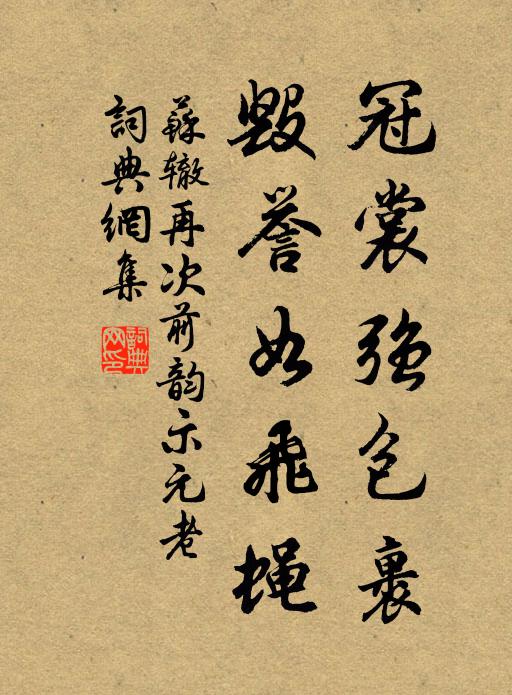 冠裳強包裹
毀誉如飛蝇
蘇辙再次前韵示元老
詞典網集
詞典网印